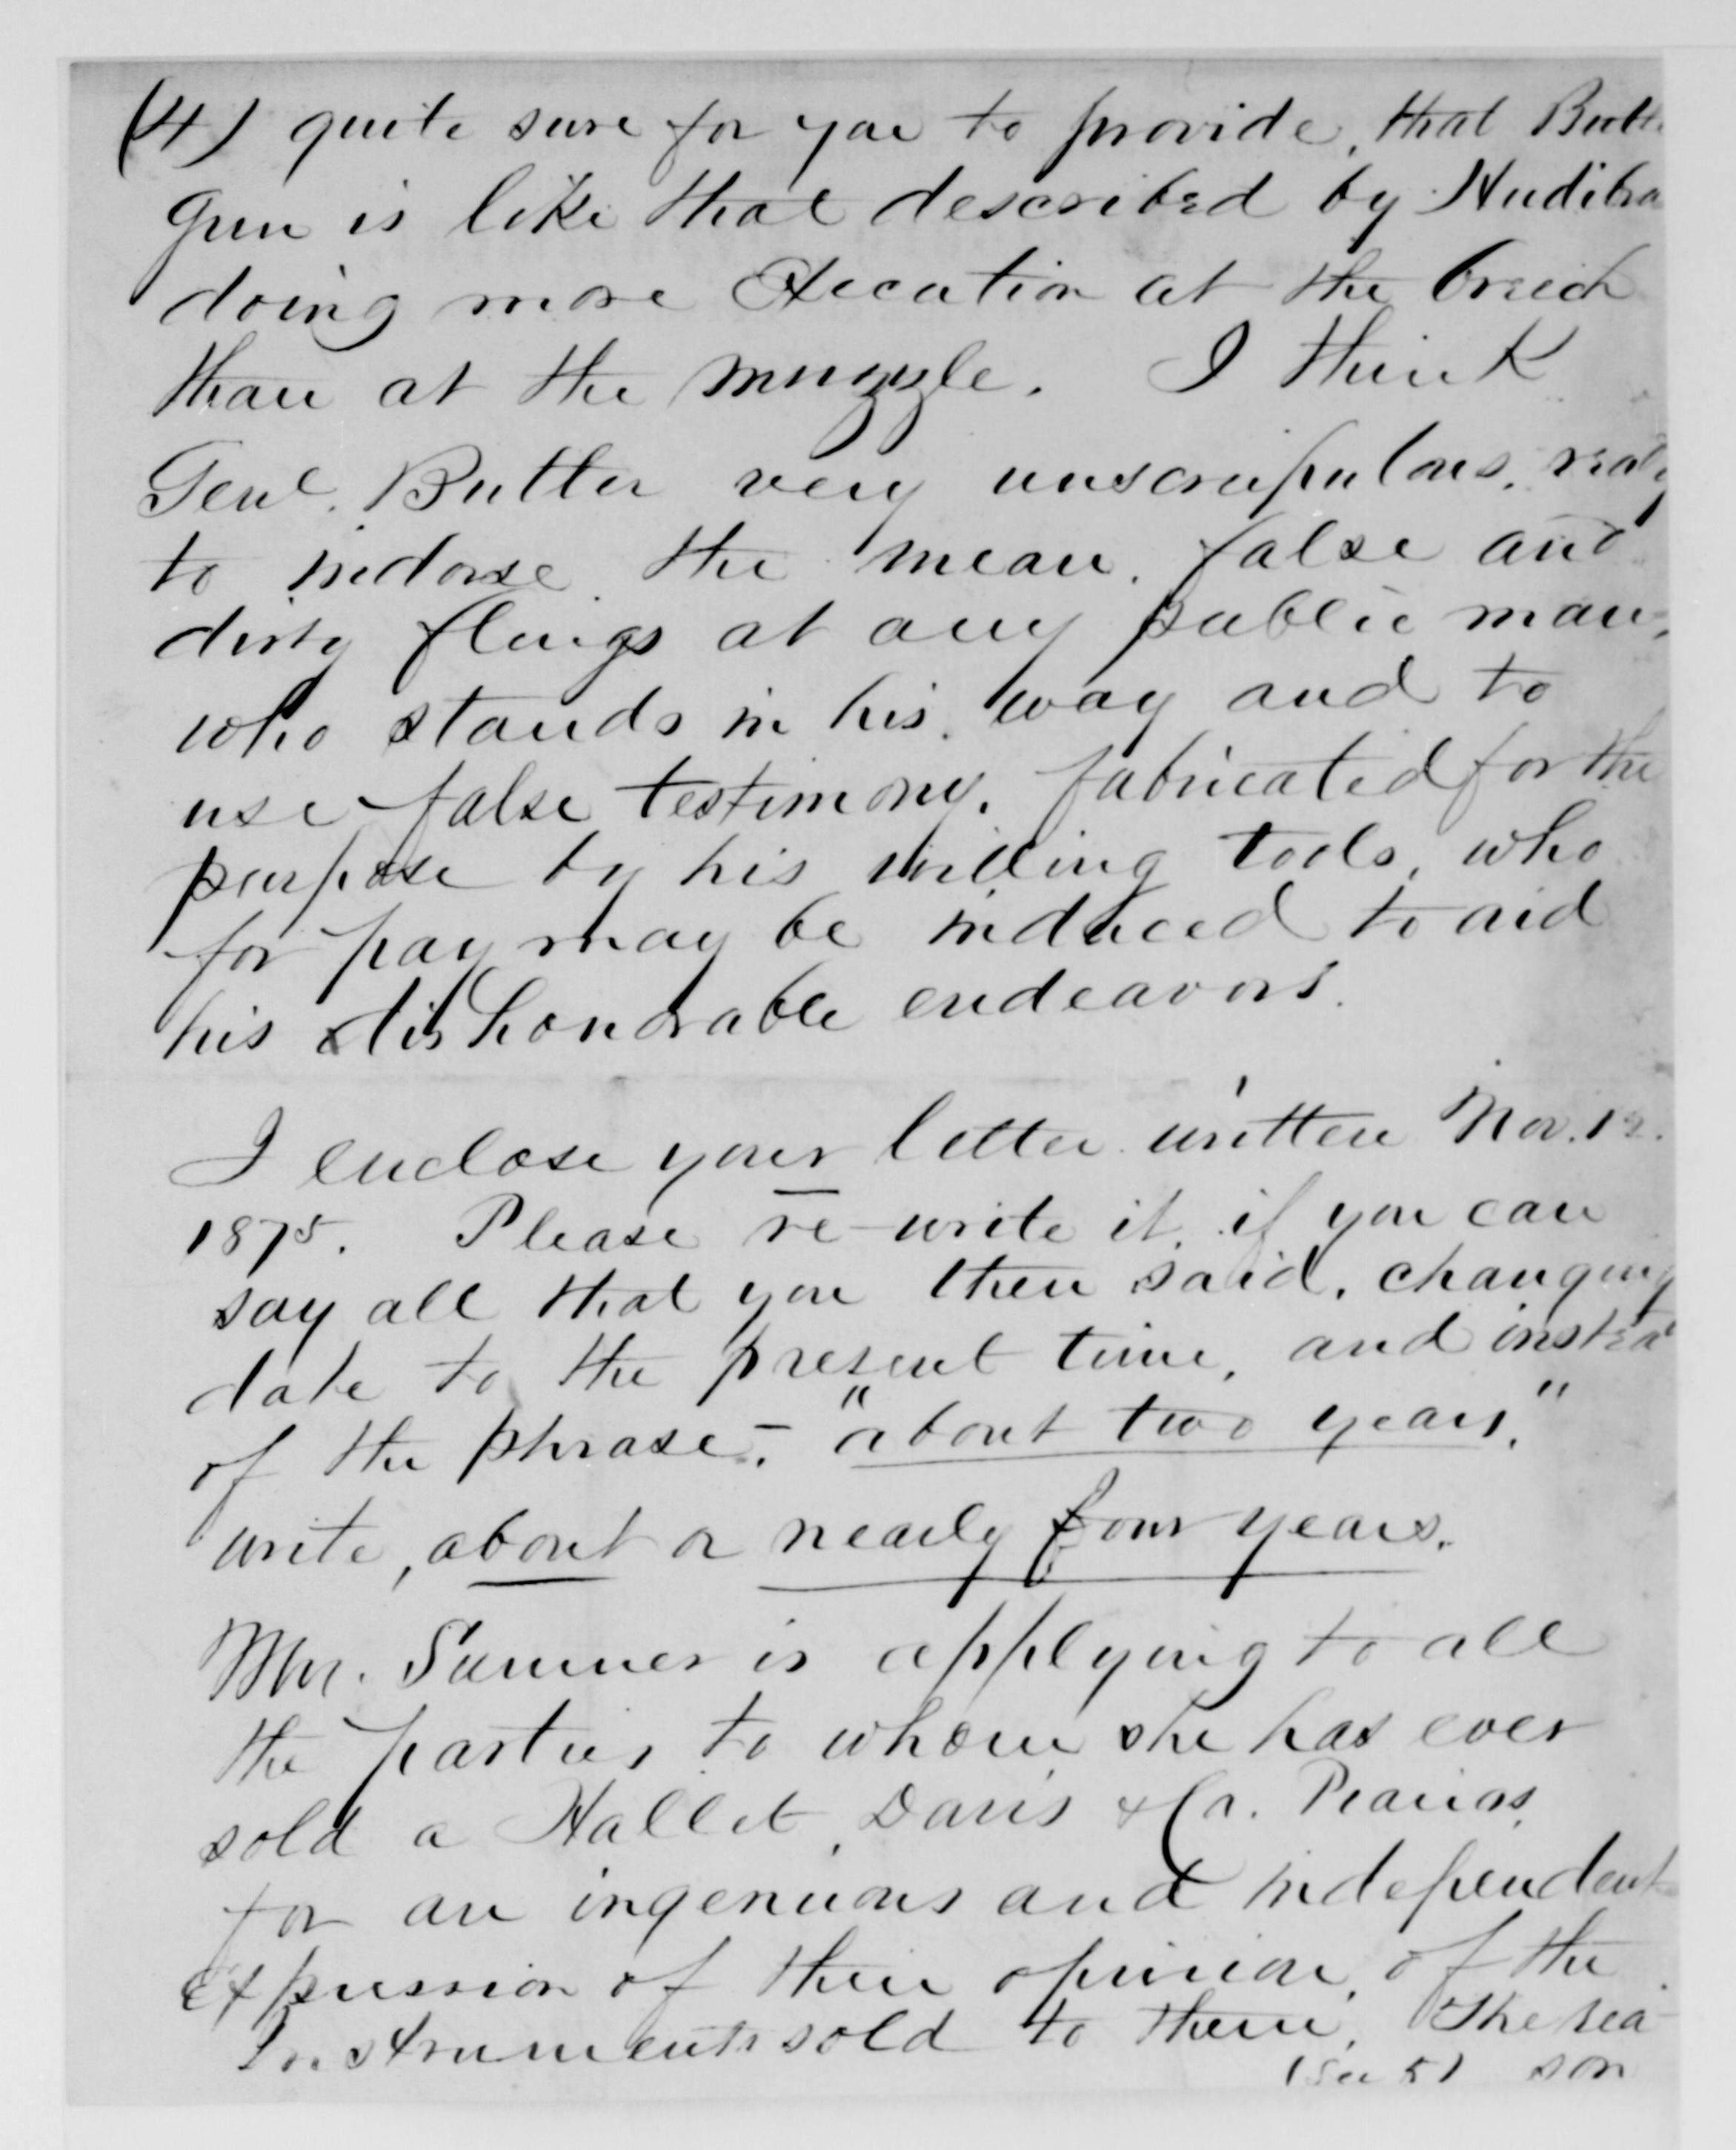 (4) quite sure for you to provide, that
gun is like that described by Hudibra
doing more Execution at the breech
than at the muzzle. I think
Genl. Butler very unscrupulous, ready
to indorse the mean, false and
dirty flings at any public man,
who stands in his way and to
use false testimony, fabricated for the
purpose by his willing tools, who
for pay may be induced to aid
his dishonorable endeavors.
I enclose your letter written Nov. 12.
1875. Please re-write it, if you can
say all that you then said, changing
date to the present time, and instead
of the phrase, - "about two years,"
write, about or nearly four years.
Mrs. Sumner is applying to all
the parties to whom she has ever
sold a Hallet, Davis & Co. Pianos,
for an ingenuous and independent
expression of their opinion, of the
Instruments sold to them. The rea-
(See 5) son